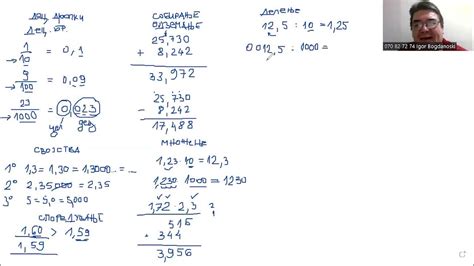 ДЕЦ. ДРОПКИ
ДЕЦ. БР.
1/10 = 0,1
9/100 = 0,09
23/1000 = 0,023
цел дец
СВОЈСТВА
1° 1,3 = 1,30 = 1,3000 = ...
2° 2,35,000 = 2,35
3° 5 = 5,0 = 5,000
СПОРЕДУВАЊЕ
1,60 > 1,59
1,59
СОБИРАЊЕ
ОДЗЕМАЊЕ
25,730
+ 8,242
33,972
25,730
- 8,242
17,488
МНОЖЕЊЕ
1,23 · 10 = 12,3
1,230 · 1000 = 1230
1,72 · 2,3
516
+ 344
3,956
ДЕЛЕЊЕ
12,5 : 10 = 1,25
0012,5 : 1000 =
070 82-72 74 Igor Bogdanoski